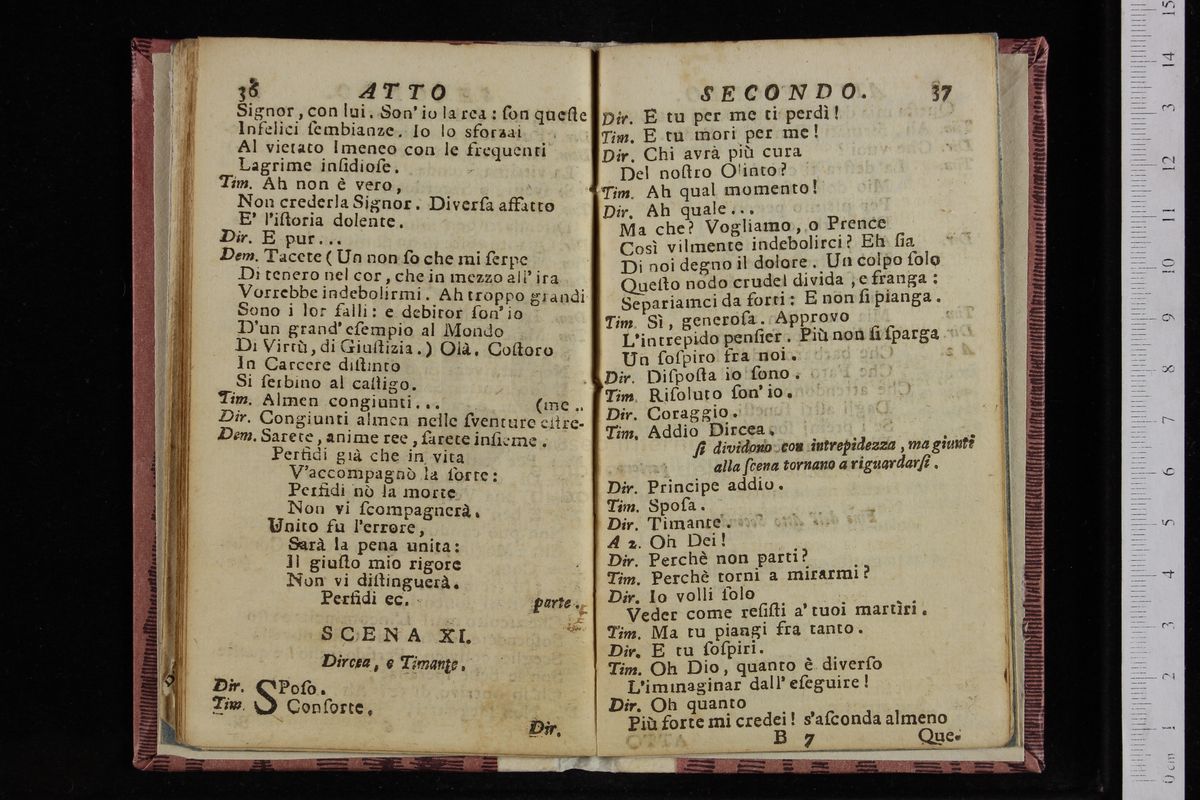 36 ATTO
Signor, con lui. Son' io la rea: ſon queſte
Infelici ſembianze. Io lo sforzai
Al vietato Imeneo con le frequenti
Lagrime inſidioſe.
Tim. Ah non è vero,
Non crederla Signor. Diverſa affatto
E' l'iſtoria dolente.
Dir. E pur...
Dem. Tacete (Un non ſo che mi ſerpe
Di tenero nel cor, che in mezzo all' ira
Vorrebbe indebolirmi. Ah troppo grandi
Sono i lor falli: e debitor ſon' io
D'un grand' eſempio al Mondo
Di Virtù, di Giuſtizia.) Olà. Coſtoro
In Carcere diſtinto
Si ſerbino al caſtigo.
Tim. Almen congiunti... (me..
Dir. Congiunti almen nelle ſventure eſtre-
Dem. Sarete, anime ree, ſarete inſieme.
Perfidi già che in vita
V'accompagnò la ſorte:
Perfidi nò la morte
Non vi ſcompagnerà.
Unito fu l'errore,
Sarà la pena unita:
Il giuſto mio rigore
Non vi diſtinguerà.
Perfidi ec. parte.
SCENA XI.
Dircea, e Timante.
Dir. SPoſo.
Tim. Conſorte.
Dir.
SECONDO. 37
Dir. E tu per me ti perdì!
Tim. E tu mori per me!
Dir. Chi avrà più cura
Del noſtro Olinto?
Tim. Ah qual momento!
Dir. Ah quale...
Ma che? Vogliamo, o Prence
Così vilmente indebolirci? Eh ſia
Di noi degno il dolore. Un colpo ſolo
Queſto nodo crudel divida, e franga:
Separiamci da forti: E non ſi pianga.
Tim. Sì, generoſa. Approvo
L'intrepido penſier. Più non ſi ſparga
Un ſoſpiro fra noi.
Dir. Diſpoſta io ſono.
Tim. Riſoluto ſon' io.
Dir. Coraggio.
Tim. Addio Dircea.
ſi dividono con intrepidezza, ma giunti
alla ſcena tornano a riguardarſi.
Dir. Principe addio.
Tim. Spoſa.
Dir. Timante.
A 2. Oh Dei!
Dir. Perchè non parti?
Tim. Perchè torni a mirarmi?
Dir. Io volli ſolo
Veder come reſiſti a' tuoi martìri.
Tim. Ma tu piangi fra tanto.
Dir. E tu ſoſpiri.
Tim. Oh Dio, quanto è diverſo
L'imminaginar dall' eſeguire!
Dir. Oh quanto
Più forte mi credei! s'aſconda almeno
B 7 Que-
0 cm 1 2 3 4 5 6 7 8 9 10 11 12 13 14 15